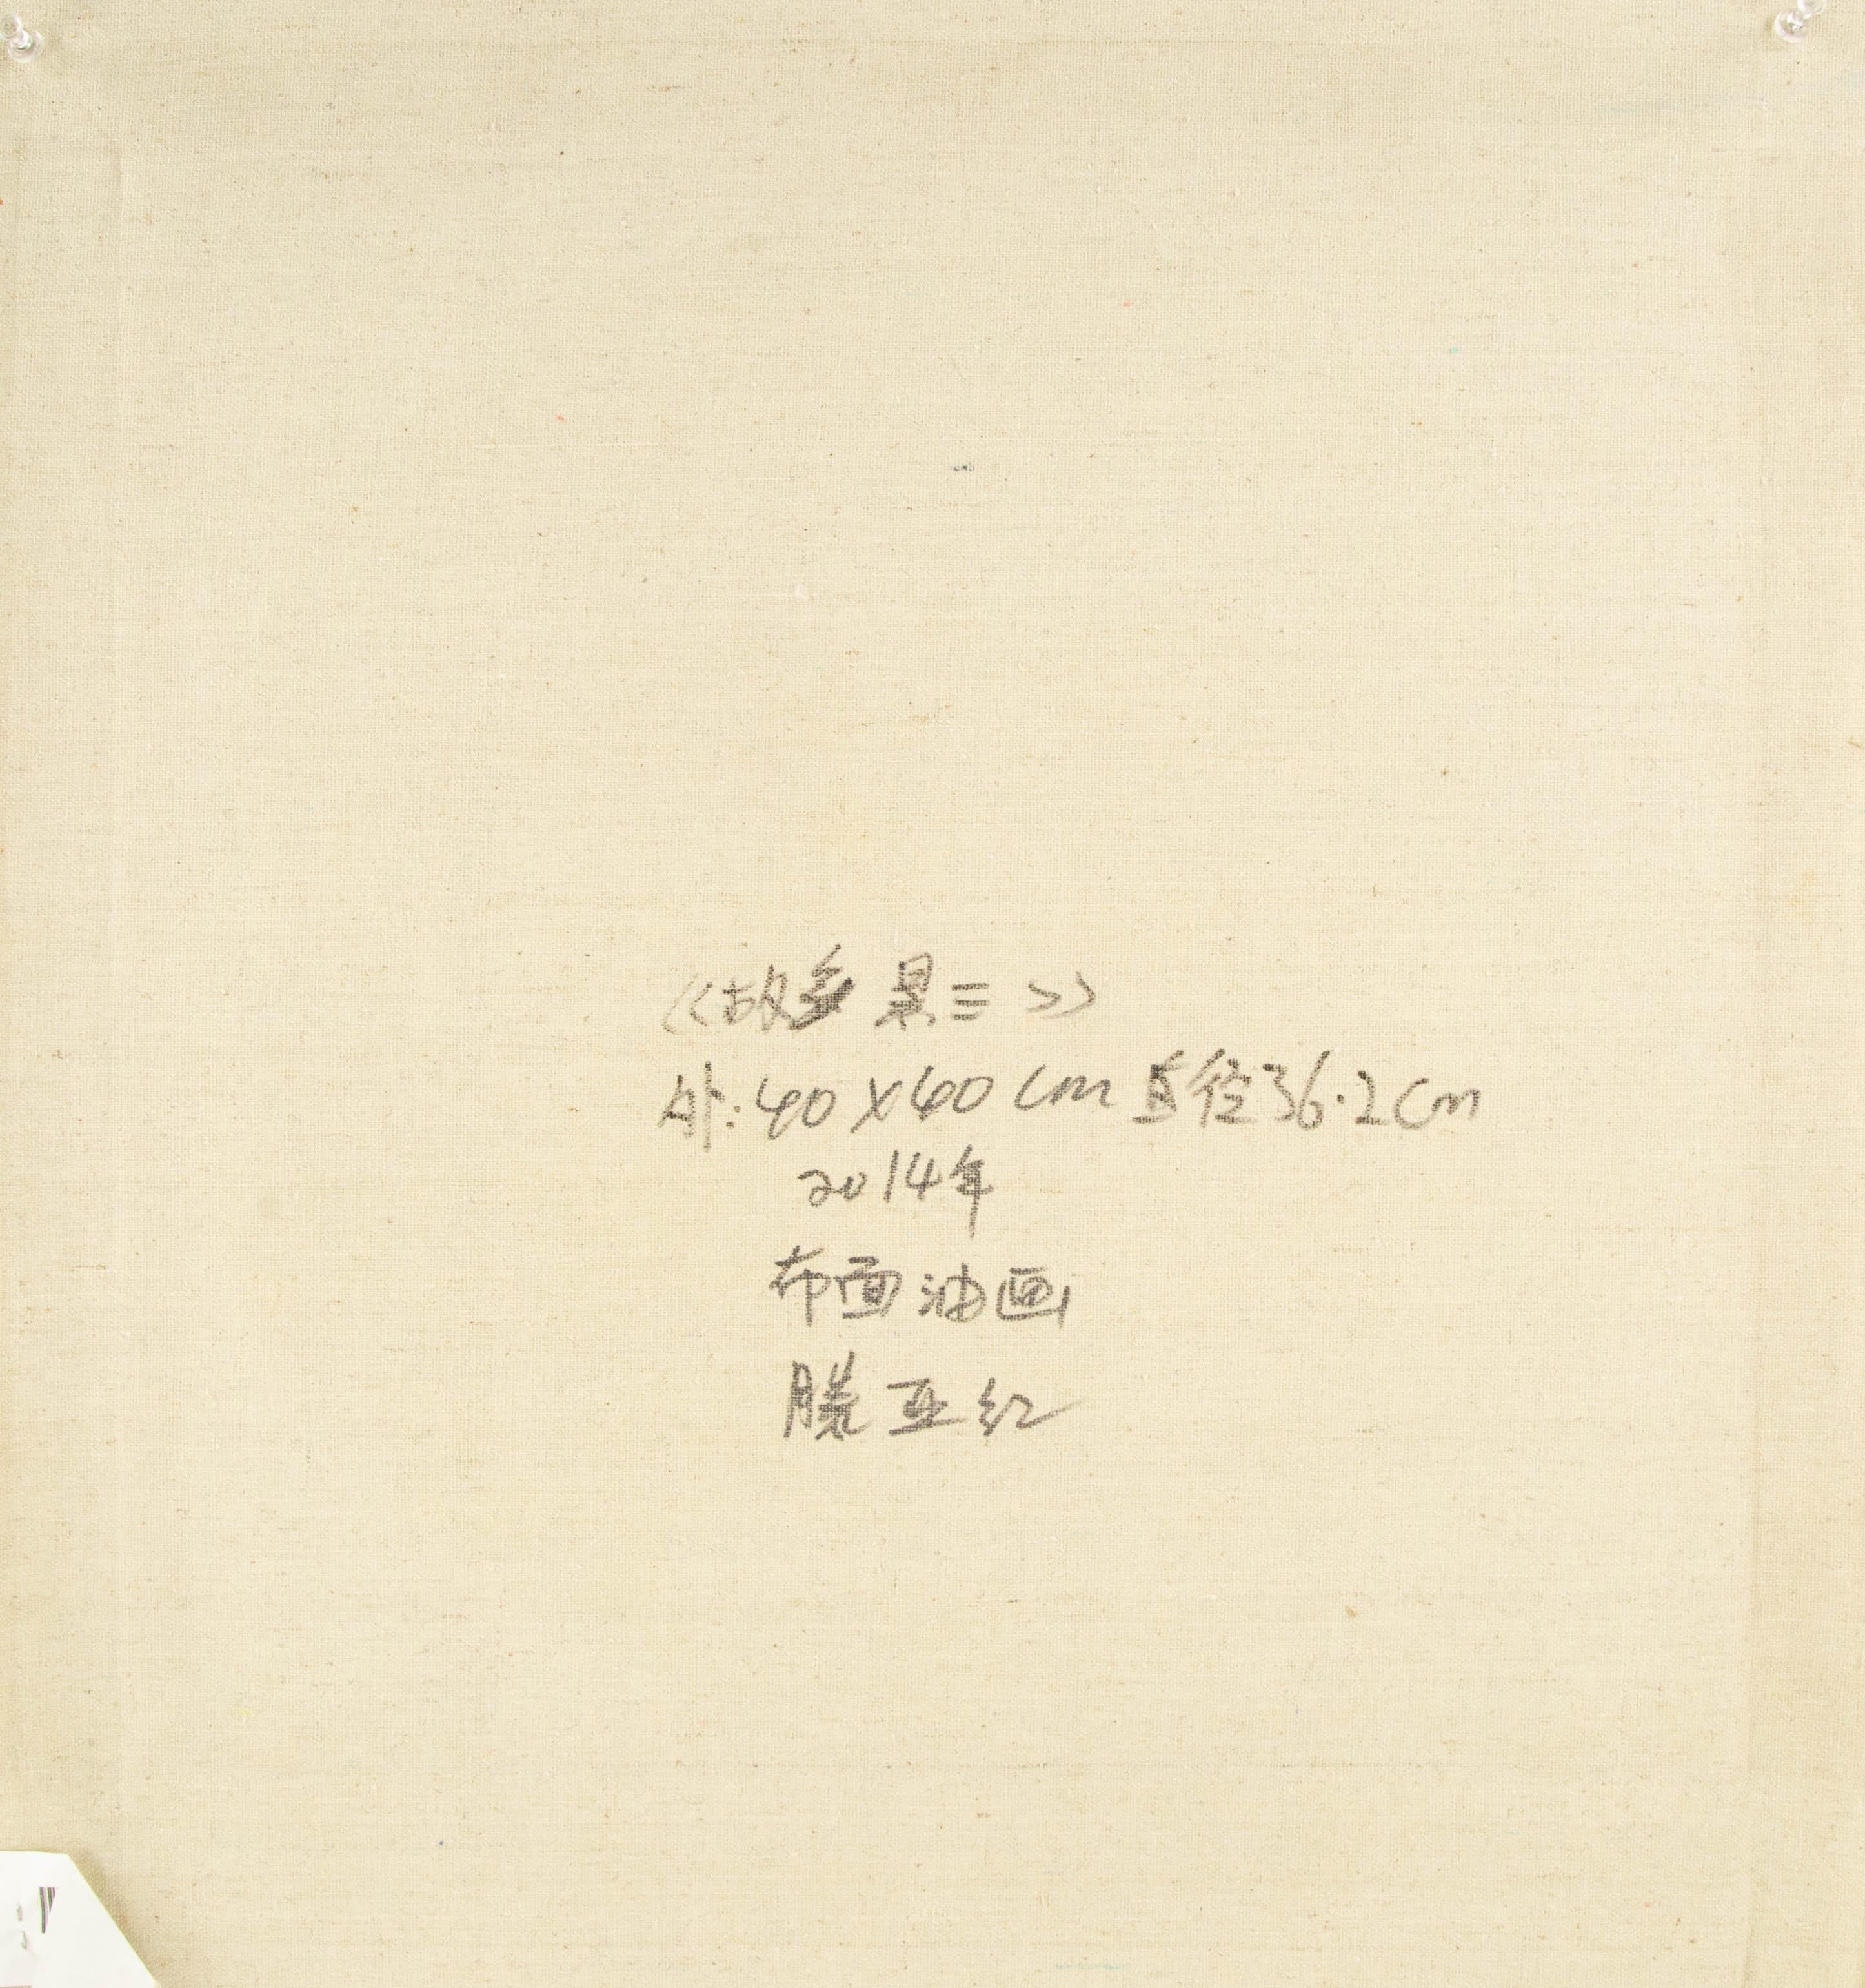 《故乡景三》
外:40×40cm 直径36.2cm
2014年
布面油画
滕亚红